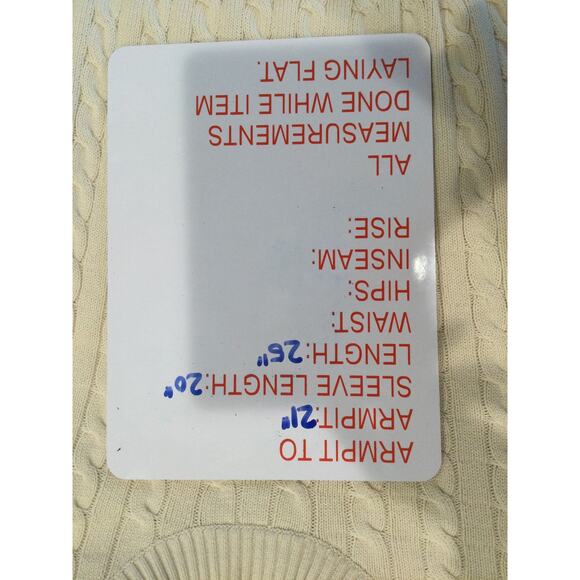 ARMPIT TO
ARMPIT: 21"
SLEEVE LENGTH: 20"
LENGTH: 26"
WAIST:
HIPS:
INSEAM:
RISE:
ALL
MEASUREMENTS
DONE WHILE ITEM
LAYING FLAT.